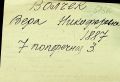 Волчек
Вера Никифоровна
1887
7 поперечн 3